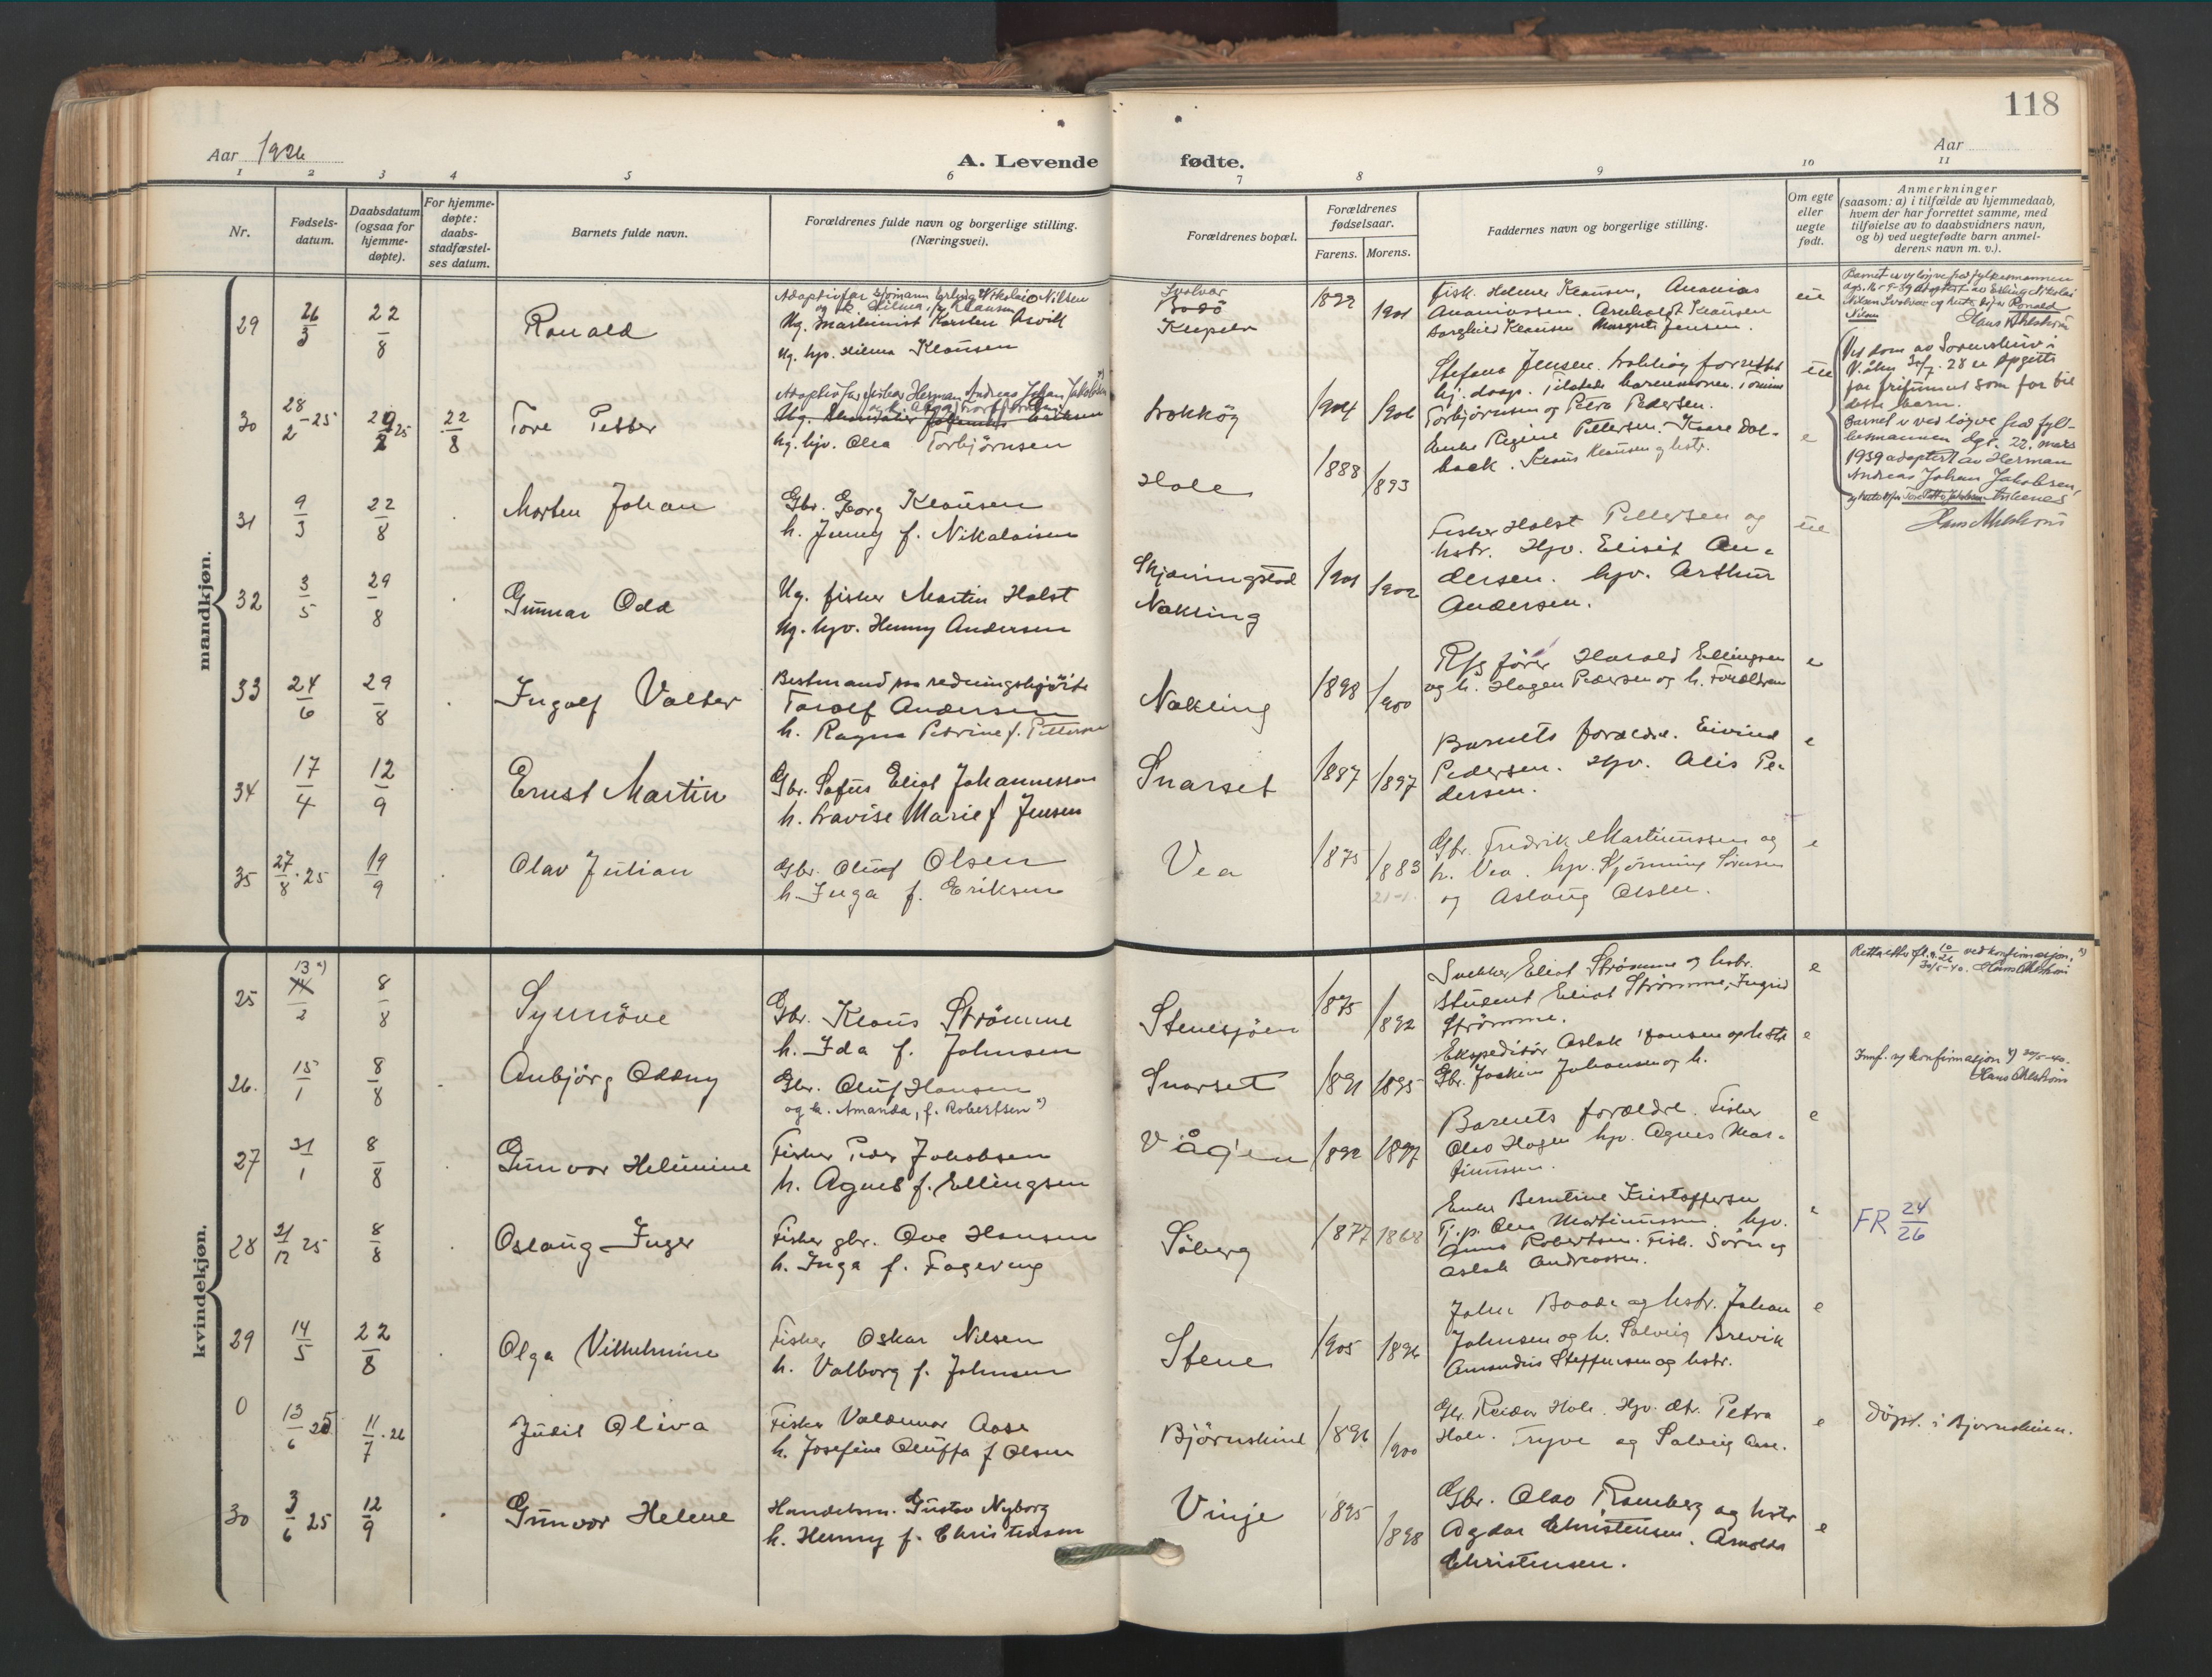 118
Aar 1926
A. Levende fødte.
Aar
1 2 3 4 5 6 7 8 9 10 11
Nr.
Fødsels-
datum.
Daabsdatum
(ogsaa for
hjemme-
døpte).
For hjemme-
døpte:
daabs-
stadfæstel-
ses datum.
Barnets fulde navn.
Forældrenes fulde navn og borgerlige stilling.
(Næringsvei).
Forældrenes bopæl.
Forældrenes
fødselsaar.
Farens. Morens.
Faddernes navn og borgerlige stilling.
Om egte
eller
uegte
født.
Anmerkninger
(saasom: a) i tilfælde av hjemmedaab,
hvem der har forrettet samme, med
tilføielse av to daabsvidners navn,
og b) ved uegtefødte barn anmel-
derens navn m. v.).
mandkjøn.
29 26/3 22/8 Ronald
Adoptivfar sjømann Erling Nikolai Nilsen
og h. Hilma, f. Klausen
Ug. maskinist Karsten Asvik
Ug. hjv. Hilma Klausen
Svolvær
Bodö
1899 1901
fisk. Helmer Klausen, Ananias
Ananiassen. Arnholdt Klausen
Borghild Klausen Margrete Jensen.
ue
Barnet er v. løyve frå fylkesmannen
dgs. 16-5-39 adoptert av Erling Nikolai
Nilsen Svolvær og heiter difor Ronald
Nilsen Hans Ahlström
30 28/2-25 29/2 25 22/8 Tore Petter
Adoptivfar fisker Herman Andreas Johan Jakobsen
Ug. hjv. Olea Torbjørnsen
1904 1906
Stefana Jensen. forrettet
hj. daap. Tilstede
Torbjørnsen og Petra Pedersen.
ue
Ved dom av Sorenskriv i
V.ålen 30/7. 28 er opgitt
far frifunnet som far til
dette barn.
Barnet er ved løyve frå fyl-
kesmannen dgs. 22. mars
1939 adoptert av Herman
Andreas Johan Jakobsen,
Hans Ahlström
31 9/3 22/8 Morten Johan
Gbr. Georg Klausen
h. Jenny f. Nikolaisen
Hole
1888 1893
Enke Regine Pettersen. Kaare Dol-
back. Klaus Klausen g hstr.
e
32 3/5 29/8 Gunnar Odd
Ug. fisker Martin Holst
Ug. hjv. Henny Andersen
Skjæringstad
Nokling
1901 1902
Fisker Holst Pettersen og
hstr. Hjv. Elisit An-
dersen. hjv. Arthur
Andersen.
ue
33 24/6 29/8 Ingolf Valter
Bestmand paa redningsskjöite
Torolf Andersen
h. Ragna Petrine f. Pettersen
Nokling
1898 1900
Rfg fører Harald Ellingsen
og h. Hagen Pedersen og h. Forældrene
e
34 17/4 12/9 Ernst Martin
Gbr. Sofus Eliot Johannessen
h. Lovise Marie f Jensen
Snarset
1887 1897
Barnets forældre. Eivind
Pedersen. Hjv. Alis Pe-
dersen.
e
35 27/8·25 19/9 Olav Julian
Gbr. Oluf Olsen
h. Inga f. Eriksen
Vea
1875 1883
21-1.
Gbr. Fredrik Martinussen og
h. Vea. hjv. Sörensen
og Aslaug Olsen.
e
kvindekjøn.
25 13 x) 14/2 8/8 Synnöve
Gbr. Klaus Strömme
h. Ida f. Johnsen
Stenesjöen
1875 1892
Snekker Eliot Strömme og hstr.
Student Eliot Strömme, Ingrid
Strömme.
e
Retta etter fl. a. 10/26 ved konfirmasjon. x)
30/5-40. Hans Ahlström
26. 15/1 8/8 Anbjörg Oddny
Gbr. Oluf Hansen
og h. Amanda, f. Robertsen x)
Snarset
1891 1895
Ekspeditör Aslak Hansen og hstr
Gbr. Joakim Johansen og h.
e
Innf. v/ konfirmasjon x) 30/5-40.
Hans Ahlström
27 31/1 8/8 Gunvor Helmine
Fisker Peder Jakobsen
h. Agnes f. Ellingsen
Vågen
1892 1897
Barnets forældre. Fisker
Olav Hagen hjv. Agnes Mar-
tinussen.
e
28 31/12 25 8/8 Oslaug Inger
Fisker gbr. Ove Hansen
h. Inga f. Fagereng
Söberg
1877 1868
Enke Berntine Kristoffersen
Tj.p. Olea Martinussen. hjv.
Anna Robertsen. Fisk. Sörn og
Aslak Andreassen.
e
FR 24/26
29 14/5 22/8 Olga Vilhelmine
Fisker Oskar Nilsen
h. Valborg f. Johnsen
Stene
1905 1896
John Baade og hstr. Johan
Johnsen og h. Solveig Brevik
Amandus Steffensen og hstr.
e
0 13/6 25 11/7·26 Judit Oliva
Fisker Valdemar Aase
h. Josefine Oluffa f Olsen
Björnskind
1896 1900
Gbr. Reidar Hole. Hjv. dtr. Petra
Hole. Trygve og Solveig Aase.
e
Döpt. i Bjørnskinn.
30 3/6 25 12/9 Gunvor Helene
Handelsm. Gustav Nyborg
h. Henny f. Christensen
Vinje
1895 1898
Gbr. Olav Ramberg og hstr
Agdar Christensen. Arnolda
Christensen.
e